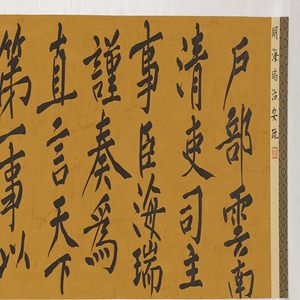 明海瑞治安疏
戶部雲南
清吏司主
事臣海瑞
謹奏為
直言天下
第一事以